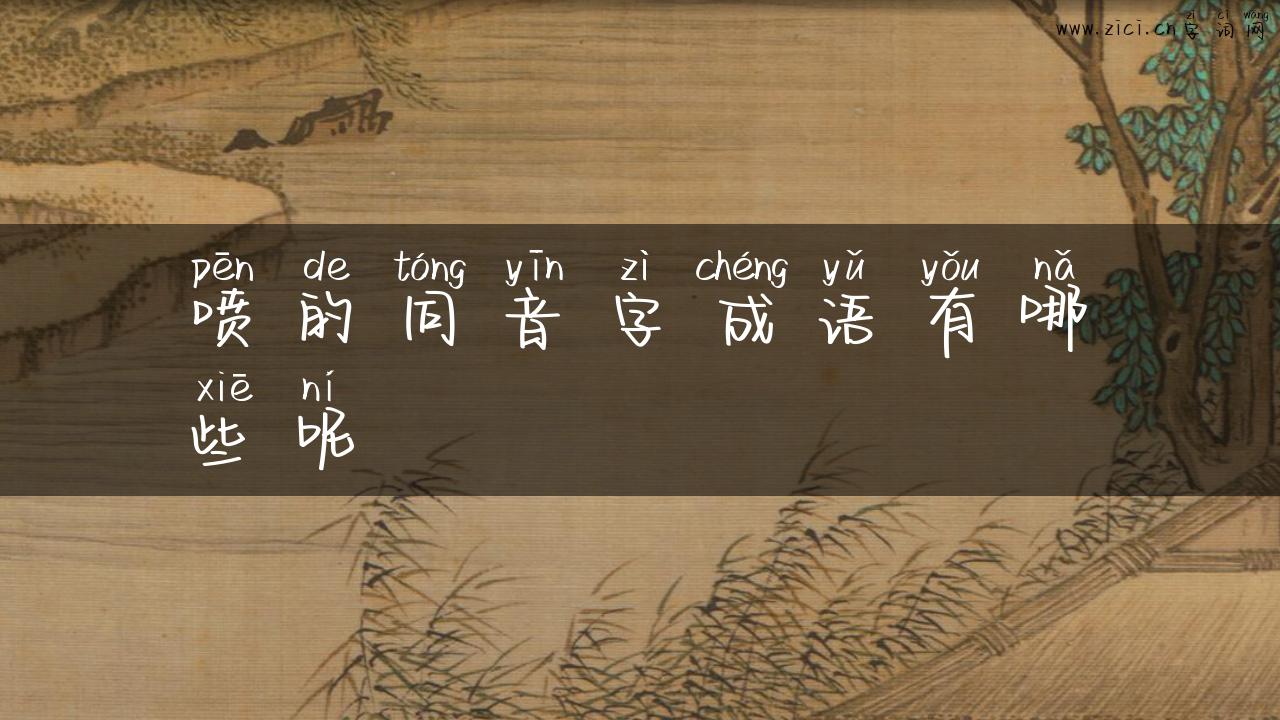 zì cí wǎng
www.zici.cn字词网
pēn de tóng yīn zì chéng yǔ yǒu nǎ
喷的同音字成语有哪
xiē ní
些呢